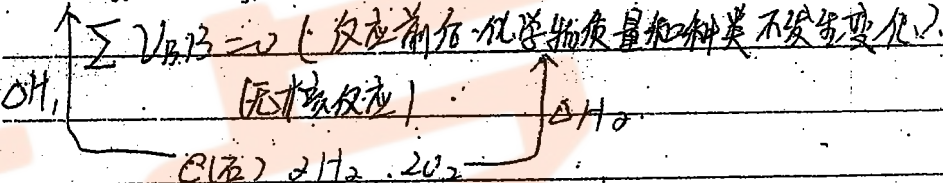 ∑νB·B=0（反应前后·化学物质量和种类不发生变化）.
ΔH₁ （无核反应） ΔH₂
C(石) 2H₂ . 2O₂